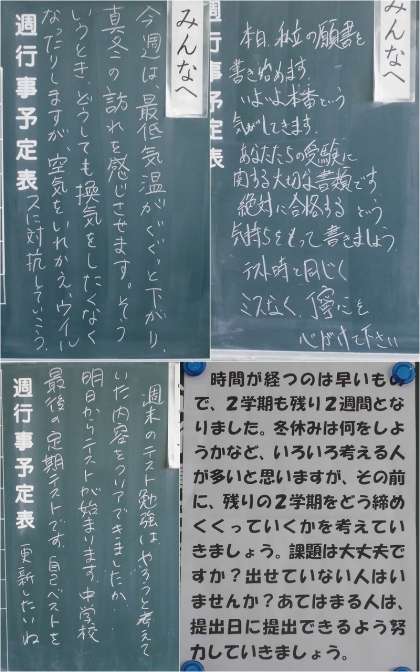 みんなへ
今週は、最低気温がぐぐっと下がり、
真冬の訪れを感じさせます。そう
いうとき、どうしても換気をしたくなく
なったりしますが、空気をいれかえ、ウイル
スに対抗していこう。
週行事予定表
みんなへ
週行事予定表
本日、私立の願書を
書き始めます。
いよいよ本番という
気がしてきます。
あなたたちの受験に
関する大切な書類です。
絶対に合格する という
気持ちをもって書きましょう。
テスト時と同じく
ミスなく、丁寧さを
心がけて下さい
週末のテスト勉強はやろうと考えて
いた内容をついてできましたか。
明日からテストが始まります。中学校
最後の定期テストです。自己ベストを
更新したいね
週行事予定表
時間が経つのは早いもの
で、2学期も残り2週間とな
りました。冬休みは何をしよ
うかなど、いろいろ考える人
が多いと思いますが、その前
に、残りの2学期をどう締め
くくっていくかを考えてい
きましょう。課題は大丈夫で
すか?出せていない人はい
ませんか?あてはまる人は、
提出日に提出できるよう努
力していきましょう。